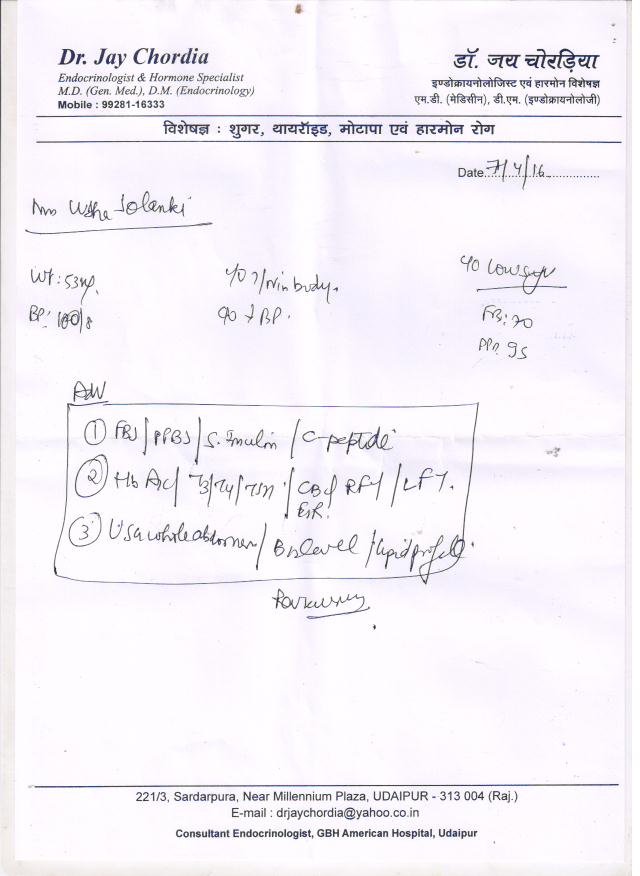 Dr. Jay Chordia
Endocrinologist & Hormone Specialist
M.D. (Gen. Med.), D.M. (Endocrinology)
Mobile : 99281-16333
डॉ. जय चोरड़िया
इण्डोक्रायनोलोजिस्ट एवं हारमोन विशेषज्ञ
एम.डी. (मेडिसीन), डी.एम. (इण्डोक्रायनोलोजी)
विशेषज्ञ : शुगर, थायरॉइड, मोटापा एवं हारमोन रोग
Date 7/4/16
Solanki
Wt: 53
BP:
body.
BP.
Low sugar
FB: 70
PP: 95
Adv
① FBS/PPBS/S. Insulin/C-peptide
② HbA1C/T3/T4/TSH/CBC/RFT/LFT.
ESR.
③ USG whole abdomen/B12 level/Lipid profile.
221/3, Sardarpura, Near Millennium Plaza, UDAIPUR - 313 004 (Raj.)
E-mail : drjaychordia@yahoo.co.in
Consultant Endocrinologist, GBH American Hospital, Udaipur